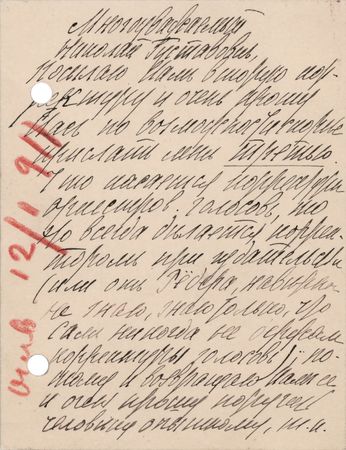 Многоуважаемый
Николай Густавович,
Посылаю Вамъ вторую кор-
ректуру и очень прошу
Васъ по возможности скорее
прислать мне третью.
Что касается корректуры
оркестров. голосовъ, то
это всегда делается коррек-
торомъ при издательстве
(или отъ Рёдера, наверное
не знаю, знаю только, что
самъ никогда не держалъ
корректуры голосовъ), по-
тому и возвращаю Вамъ ее
и очень прошу поручить
человеку опытному, т.к.
отв 12/I 911